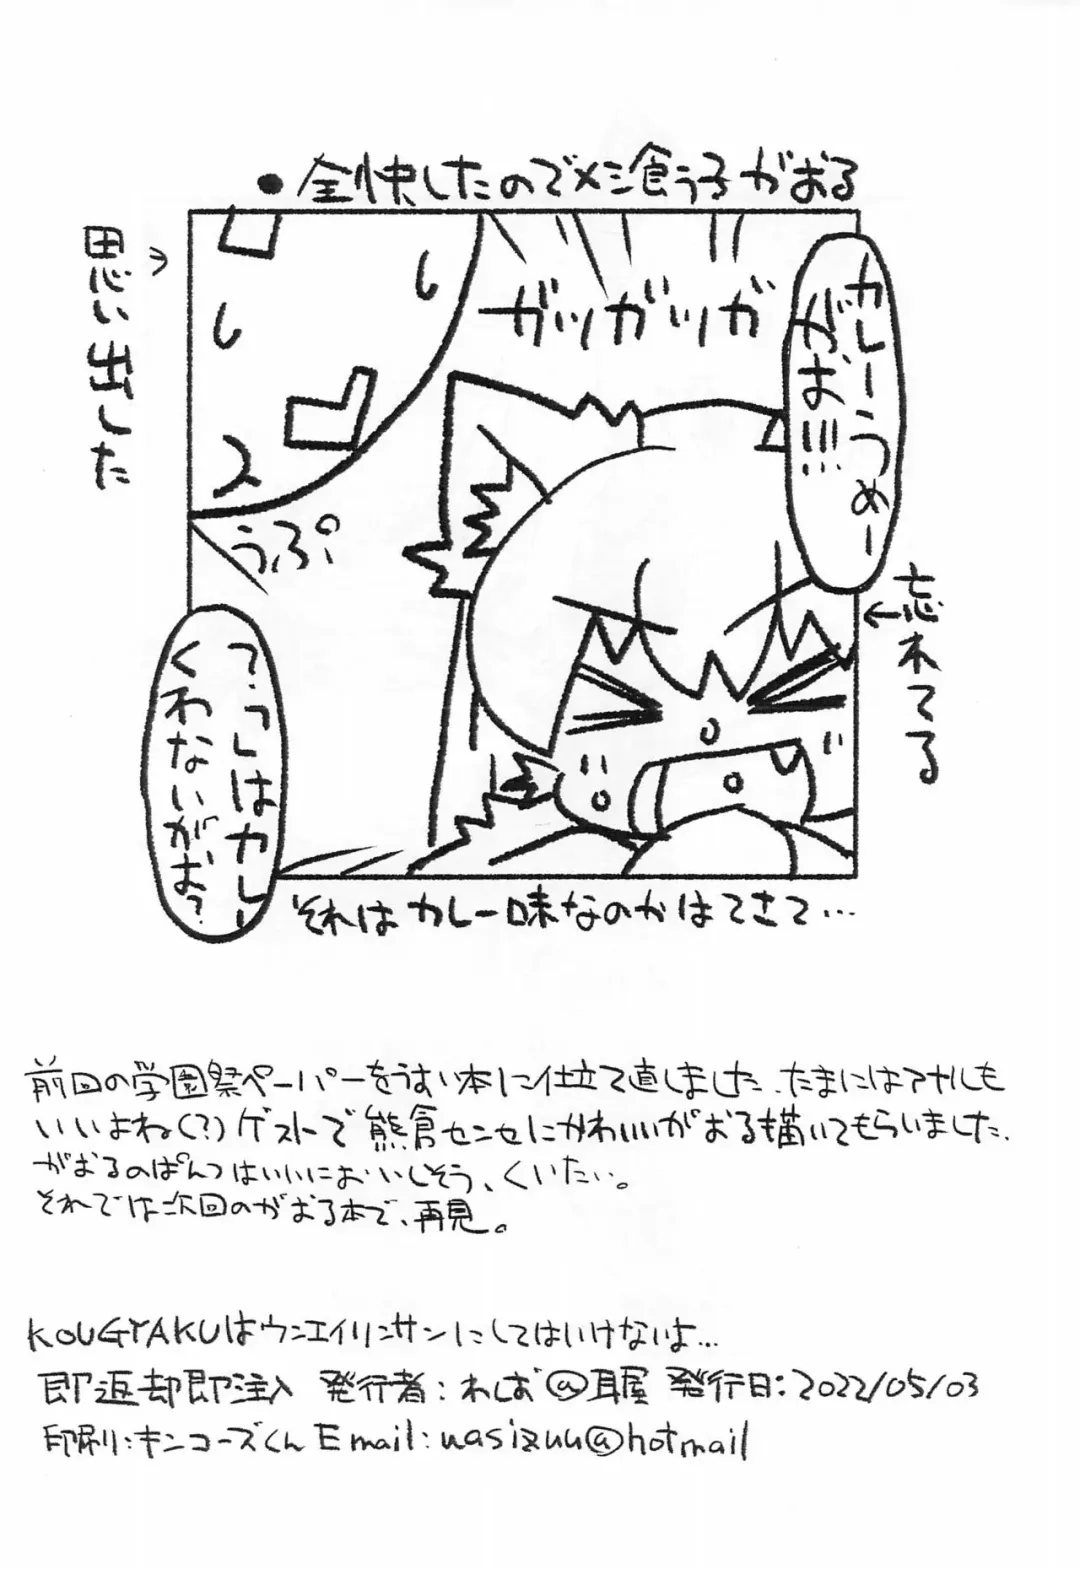 ●全快したのでメシ食う子がおる
カレーうめー
がお!!!
ガツガツガ
思い出した
うぷ
←忘れてる
くわないがお?
それはカレー味なのかはてさて…
前回の学園祭ペーパーをうすい本に仕立て直しました、たまにはアナルも
いいよね(?)ゲストで熊倉センセにかわいいがおるも描いてもらいました、
がおるのぱんつはいいにおいしそう、くいたい。
それでは次回のがおる本で、再見。
KOUGYAKUはウンエイリンサンにしてはいけないよ…
即返却即注入 発行者:わしお@耳屋 発行日:2022/05/03
印刷:キンコーズくん Email:wasizuu@hotmail